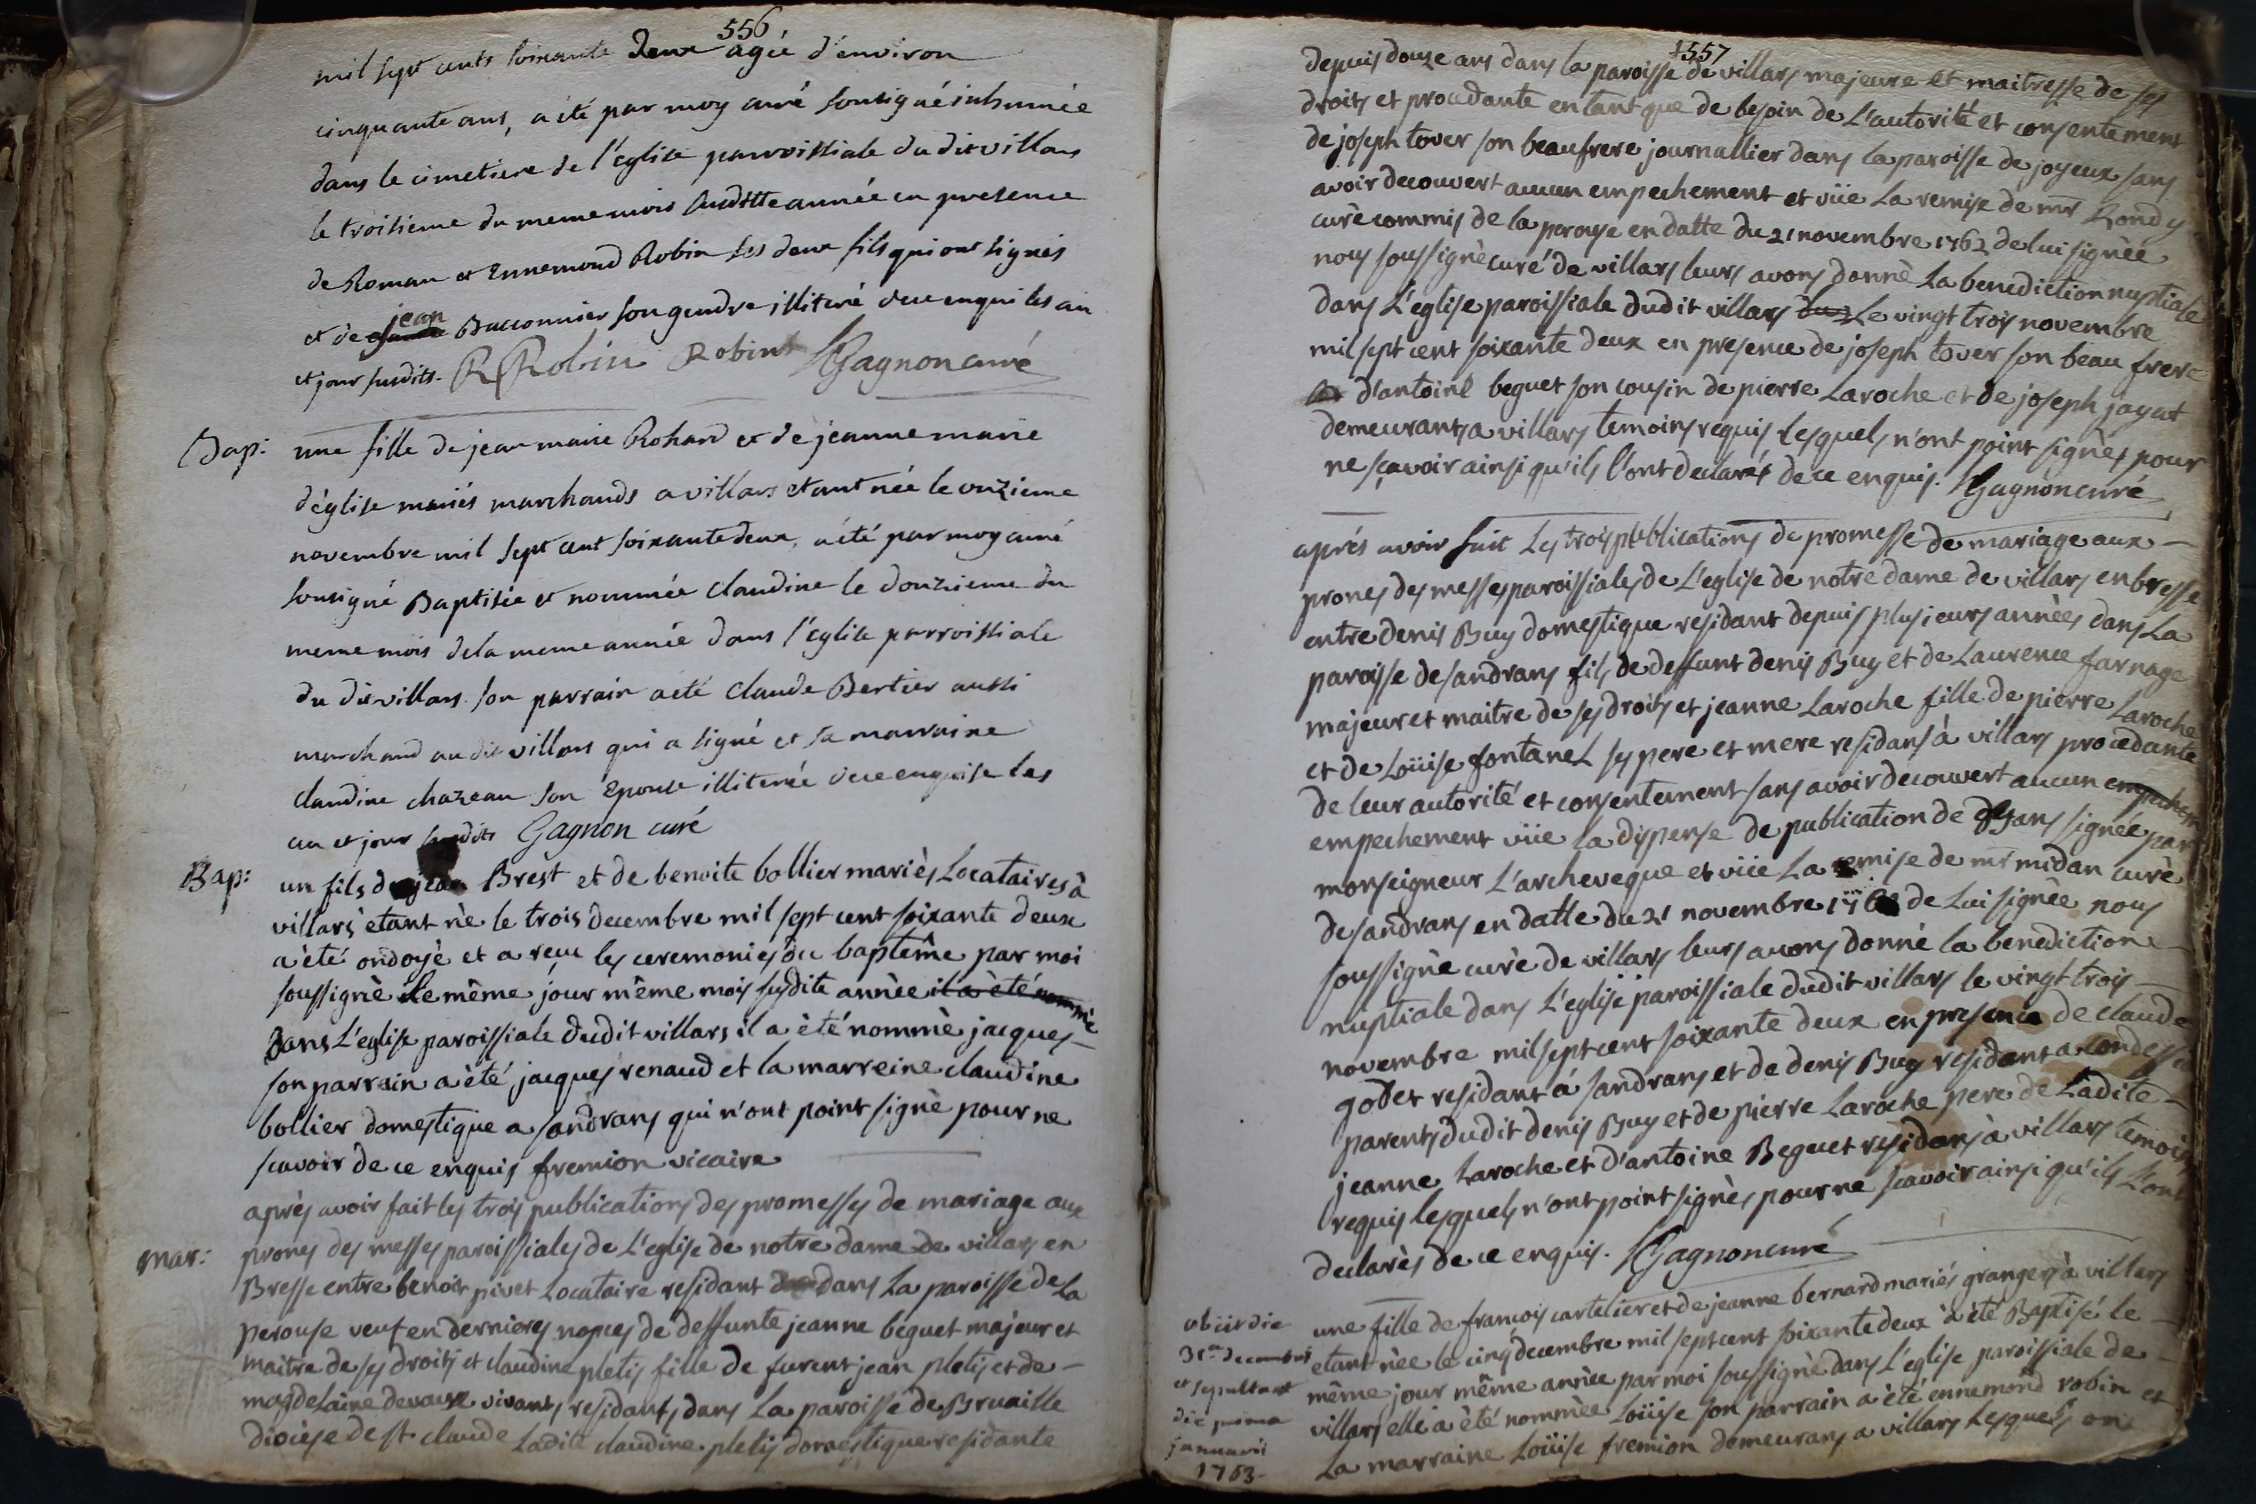 556
mil sept cents soixante deux agée d'environ
cinquante ans, a été par moy curé sousigné inhumée
dans le cimetiere de l'église parroissiale du dit villars
le troisieme du meme mois susditte année en presence
de Roman et Ennemond Robin ses deux fils qui ont signés
et de jean Bacconnier son gendre illiteré de ce enquis les an
et jour susdits. R Robin Robin Gagnon curé
Bap: une fille de jean marie Rohard et de jeanne marie
d'église mariés marchands a villars etant née le onzieme
novembre mil sept cent soixante deux, a été par moy curé
sousigné Baptisée et nommée claudine le douzieme du
meme mois de la meme année dans l'église parroissiale
du dit villars. son parrain a été claude Bertier aussi
marchand au dit villars qui a signé et sa marraine
claudine chazeau son épouse illiterée de ce enquise les
an et jour susdits Gagnon curé
Bap: un fils de jean Brest et de benoite bollier mariès Locataires à
villars ètant nè le trois decembre mil sept cent soixante deux
a été ondoyè et a reçu les ceremonies du baptême par moi
soussignè le même jour même mois susdite annèe il a été nommè
dans L'eglise paroissiale dudit villars il a èté nommè jacques
son parrain a èté jacques renaud et la marreine claudine
bollier domestique a sandrans qui n'ont point signè pour ne
scavoir de ce enquis fremion vicaire
après avoir fait les trois publications des promesses de mariage aux
mar: prones des messes paroissiales de L'eglise de notre dame de villars en
Bresse entre benoit pivet Locataire residant dans La paroisse de La
perouse veuf en dernieres nopces de deffunte jeanne beguet majeur et
maitre de ses droits et claudine pletis fille de furent jean pletis et de
magdelaine devaux vivants residants dans La paroisse de Bruaille
diocèse de st. claude Ladite claudine pletis domestique residante
557
depuis douze ans dans la paroisse de villars majeure et maitresse de ses
droits et procedante en tant que de besoin de L'autorité et consentement
de joseph tover son beaufrere journallier dans la paroisse de joyeux sans
avoir decouvert aucun empechement et vüe La remise de mr Rondy
curè commis de la perouse en datte du 21 novembre 1762 de lui signèe
nous soussignè curé de villars leurs avons donnè La benediction nuptiale
dans L'eglise paroissiale dudit villars le vingt trois novembre
mil sept cent soixante deux en presence de joseph tover son beau frere
d'antoine beguet son cousin de pierre Laroche et de joseph jayat
demeurants a villars temoins requis lesquels n'ont point signès pour
ne sçavoir ainsi qu'ils l'ont declarès de ce enquis. Gagnon curé
après avoir fait Les trois publications de promesse de mariage aux
prones des messes paroissiales de L'eglise de notre dame de villars en bresse
entre denis Buy domestique residant depuis plusieurs années dans La
paroisse de sandrans fils de deffunt denis Buy et de Laurence farnage
majeur et maitre de ses droits et jeanne Laroche fille de pierre Laroche
et de Loüise fontanel ses pere et mere residans à villars procedante
de leur autorité et consentement sans avoir decouvert aucun empechem
empechement vüe la dispense de publication de Bans signée par
monseigneur L'archeveque et vüe La remise de mr midan curè
de sandrans en datte du 21 novembre 1762 de Lui signèe nous
soussignè curè de villars leurs avons donné la benediction
nuptiale dans L'eglise paroissiale dudit villars le vingt trois
novembre mil sept cent soixante deux en presence de claude
godet residant à sandrans et de denis Buy residant a condessia
parents dudit denis Buy et de pierre Laroche pere de Ladite
jeanne Laroche et d'antoine Beguet residans à villars temoins
requis lesquels n'ont point signès pour ne scavoir ainsi qu'ils L'ont
declarès de ce enquis. Gagnon curé
une fille de francois cartelier et de jeanne bernard mariés grangers à villars
etant nèe le cinq decembre mil sept cent soixante deux à été Baptisé le
même jour même annèe par moi soussignè dans L'eglise paroissiale de
villars elle à été nommèe Loüise son parrain a été ennemond robin et
La marraine Loüise fremion demeurans a villars Lesquels ont
obiit die
31a decembris
et sepultat
die prima
januarii
1763